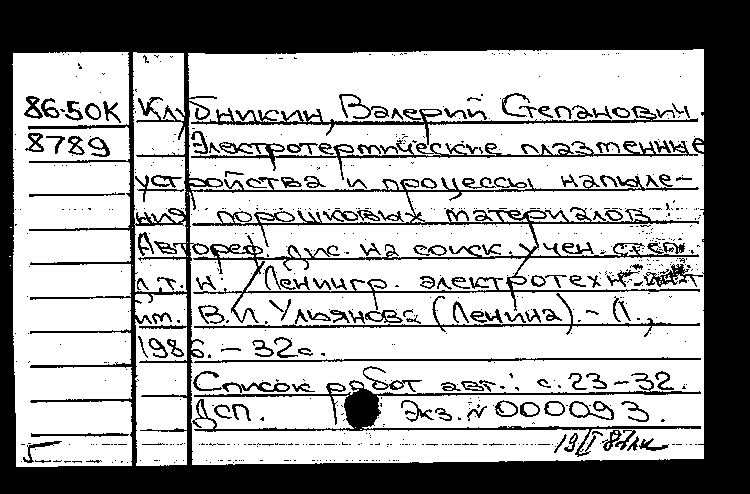 86-50К Клубникин, Валерий Степанович.
8789 Электротермические плазменные
устройства и процессы напыле-
ния порошковых материалов:
Автореф. дис. на соиск. учен. степ.
д.т.н. / Ленингр. электротехн. ин-т
им. В.И. Ульянова (Ленина). - Л.,
1986. - 32с.
Список работ авт.: с. 23-32.
ДСП. Экз. № 000093.